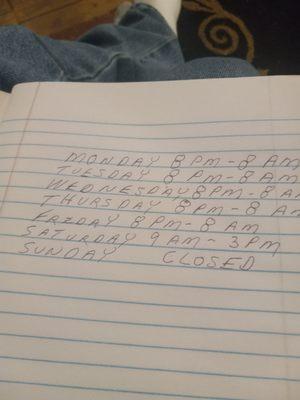 MONDAY 8 PM - 8 AM
TUESDAY 8 PM - 8 AM
WEDNESDAY 8 PM - 8 AM
THURSDAY 8 PM - 8 AM
FRIDAY 8 PM - 8 AM
SATURDAY 9 AM - 3 PM
SUNDAY CLOSED